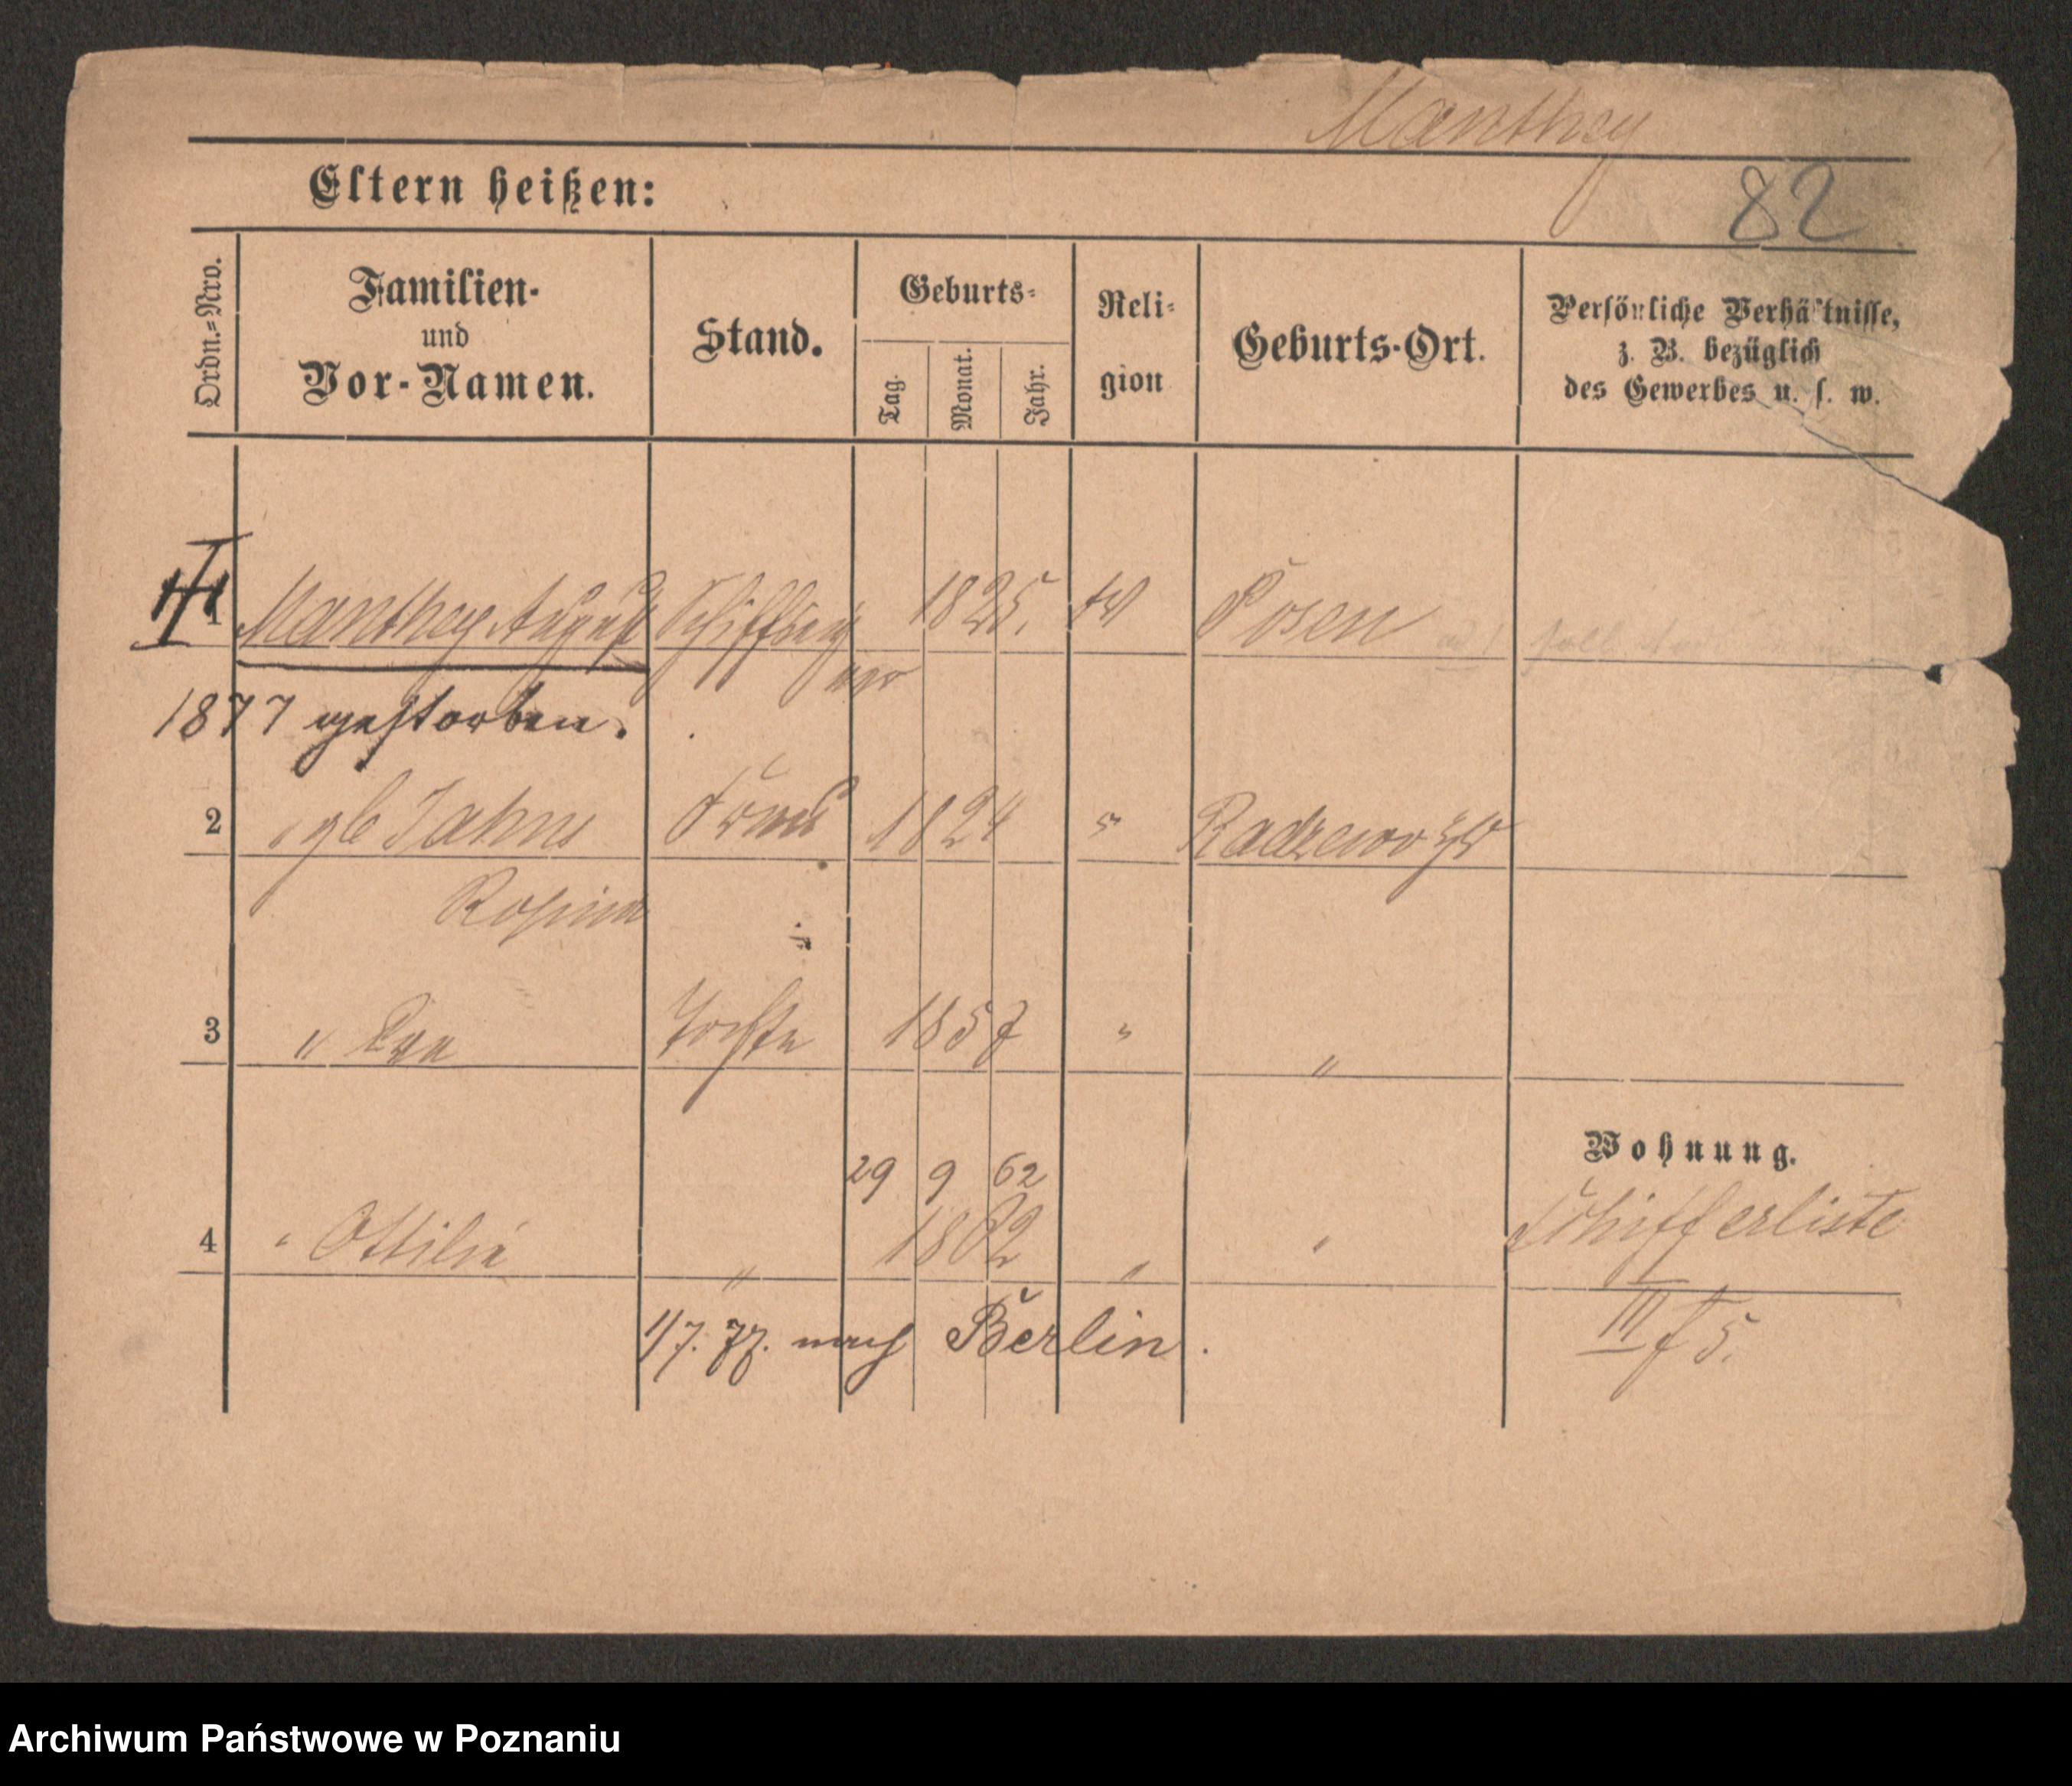 Manthey
Eltern heißen:
82
Ordn.=Nro.
Familien-
und
Vor-Namen.
Stand.
Geburts-
Tag.
Monat.
Jahr.
Reli-
gion
Geburts-Ort.
Persönliche Verhältnisse,
z. B. bezüglich
des Gewerbes u. s. w.
1 Manthey August 1825. ev Posen
1877 gestorben.
2 " gb Jahns Frau 1824 " Radzewo
Rosina
3 " Eva 1857 " "
Wohnung.
29 9 62
4 " Ottilie " 1862 " " Schifferliste
1/7. 77. nach Berlin.
III f 5.
Archiwum Państwowe w Poznaniu